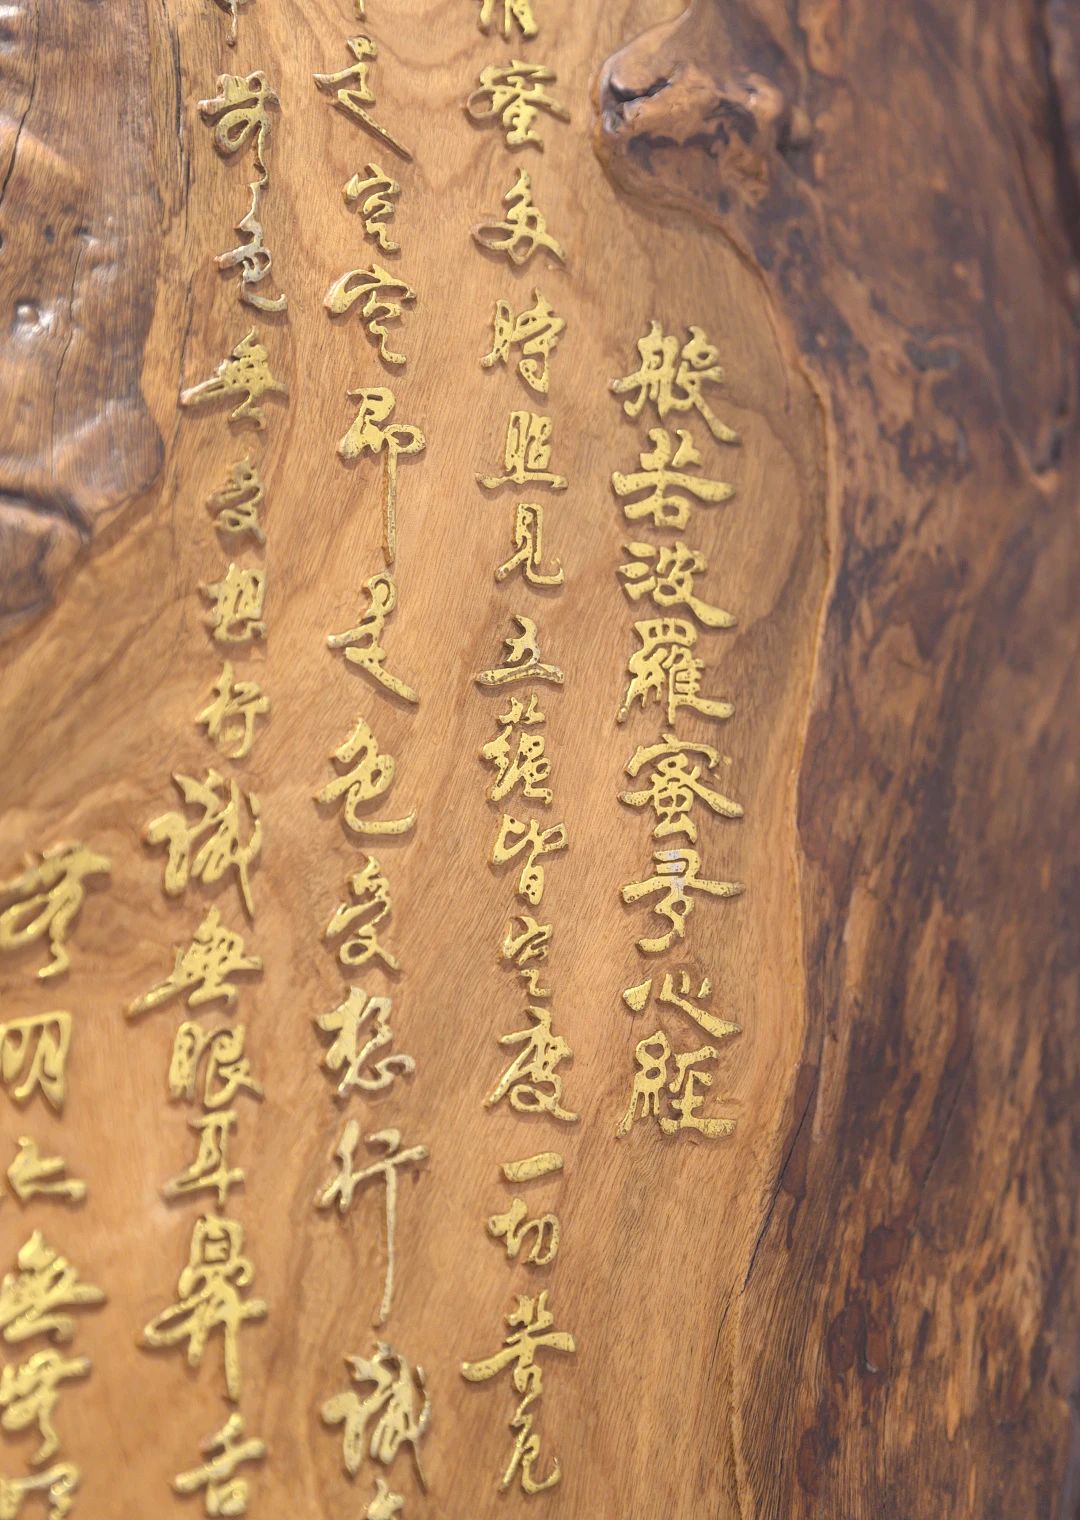 般若波羅蜜多心經
蜜多時照見五蘊皆空度一切苦厄
是空空即是色受想行識
無色無受想行識無眼耳鼻舌
無明亦無無明